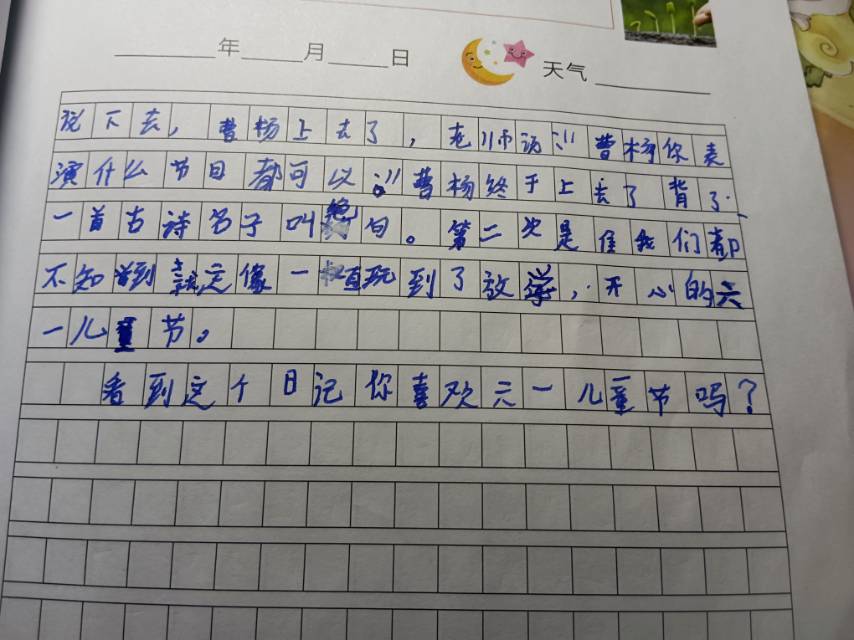 年 月 日 天气
说下去，曹杨上去了，老师说：“曹杨你表
演什么节目都可以。”曹杨终于上去了背了
一首古诗名子叫绝句。第二次是 我们都
不知 到 像一直玩到了放学，开心的六
一儿童节。
看到这个日记你喜欢六一儿童节吗？